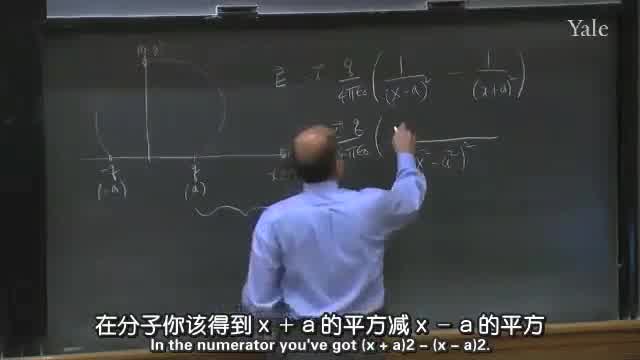 Yale
E = i q/4πε₀ ( 1/(x-a)² - 1/(x+a)² )
i q/4πε₀ ( /(x² - a²)²
-q
q
(-a)
(a)
在分子你该得到 x + a 的平方减 x - a 的平方
In the numerator you've got (x + a)2 – (x – a)2.